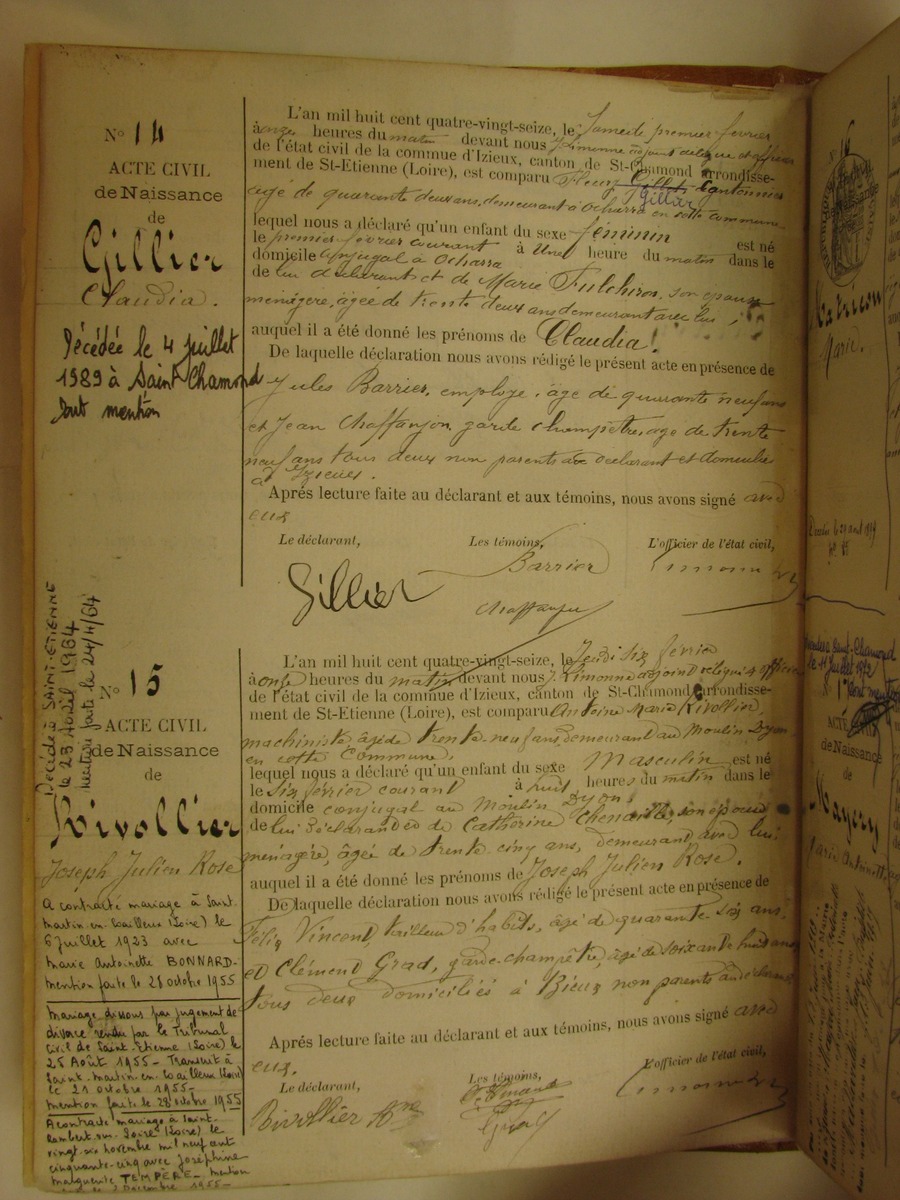 N° 14
ACTE CIVIL
de Naissance
de
Gillier
Claudia.
Décédée le 4 juillet
1989 à Saint Chamond
Dont mention
L'an mil huit cent quatre-vingt-seize, le Samedi premier février
à onze heures du matin devant nous Limonne adjoint délégué et officier
de l'état civil de la commune d'Izieux, canton de St-Chamond arrondisse-
ment de St-Etienne (Loire), est comparu Fleury Gillet Cantonnier
Gillier
agé de quarante deux ans, demeurant à Ocharra en cette commune
lequel nous a déclaré qu'un enfant du sexe féminin est né
le premier février courant à Une heure du matin dans le
domicile conjugal à Ocharra
de lui déclarant et de Marie Fulchiron, son épouse
ménagère, âgée de trente deux ans demeurant avec lui ;
auquel il a été donné les prénoms de Claudia.
De laquelle déclaration nous avons rédigé le présent acte en présence de
Jules Barrier, employé, âgé de quarante neuf ans
et Jean Chaffanjon garde champêtre, agé de trente
neuf ans tous deux non parents au déclarant et domiciliés
à Izieux.
Après lecture faite au déclarant et aux témoins, nous avons signé avec
eux
Le déclarant, Les témoins, L'officier de l'état civil,
Gillier Barrier Limonne
Chaffanjon
Décédé à SAINT-ETIENNE
le 23 Avril 1964
mention faite le 24/4/64
N° 15
ACTE CIVIL
de Naissance
de
Rivollier
Joseph Julien Rose
A contracté mariage à Saint-
Martin-en-Coailleux (Loire) le
6 juillet 1923 avec
Marie Antoinette BONNARD-
mention faite le 28 octobre 1955
Mariage dissous par jugement de
divorce rendu par le Tribunal
Civil de Saint-Etienne (Loire) le
25 Août 1955 - Transcrit à
Saint-Martin-en-Coailleux (Loire)
le 21 octobre 1955-
mention faite le 28 octobre 1955
A contracté mariage à Saint-
Rambert-sur-Loire (Loire) le
vingt-six novembre mil neuf cent
cinquante-cinq avec Joséphine
Marguerite TEMPERE - mention
2 Décembre 1955-
L'an mil huit cent quatre-vingt-seize, le Jeudi six février
à onze heures du matin devant nous J. Limonne adjoint délégué & officier
de l'état civil de la commune d'Izieux, canton de St-Chamond arrondisse-
ment de St-Etienne (Loire), est comparu Antoine Marie Rivollier,
machiniste, âgé de trente-neuf ans, demeurant au Moulin Dyon
en cette Commune,
lequel nous a déclaré qu'un enfant du sexe Masculin est né
le Six février courant à huit heures du matin dans le
domicile conjugal au Moulin Dyon
de lui déclarand et de Catherine Chenaille, son épouse
ménagère, âgée de trente-cinq ans, demeurant avec lui
auquel il a été donné les prénoms de Joseph Julien Rose.
De laquelle déclaration nous avons rédigé le présent acte en présence de
Félix Vincent, tailleur d'habits, âgé de quarante-six ans,
et Clément Grad, garde-champêtre, âgé de soixante huit ans
tous deux domiciliés à Izieux non parents au déclarant
Après lecture faite au déclarant et aux témoins, nous avons signé avec
eux.
Le déclarant, Les témoins, L'officier de l'état civil,
Rivollier F. Vincent Limonne
Grad
Matricon
Marie.
Décédée le 29 août
N°
ACTE
de Naissance
de
Mayery
Marie Antoinette